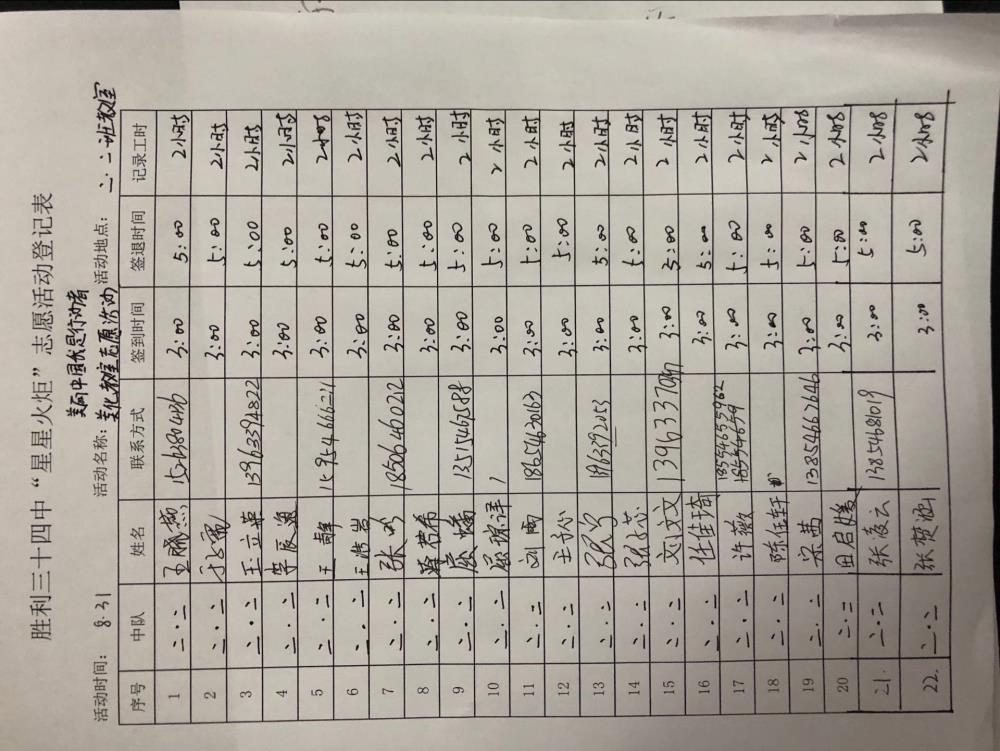 胜利三十四中“星星火炬”志愿活动登记表
美丽中国我是行动者
活动时间: 8.31 活动名称: 美化教室志愿活动 活动地点: 二.二班教室
序号 中队 姓名 联系方式 签到时间 签退时间 记录工时
1 二.二 王 燕 3:00 5:00 2小时
2 二.二 3:00 5:00 2小时
3 二.二 王立华 13963394822 3:00 5:00 2小时
4 二.二 李辰逸 3:00 5:00 2小时
5 二.二 王静 3:00 5:00 2小时
6 二.二 王浩岩 3:00 5:00 2小时
7 二.二 张 18564640212 3:00 5:00 2小时
8 二.二 若希 3:00 5:00 2小时
9 二.二 屈 3:00 5:00 2小时
10 二.二 屈 祥 3:00 5:00 2小时
11 二.二 刘陶 18654630163 3:00 5:00 2小时
12 二.二 王 3:00 5:00 2小时
13 二.二 3:00 5:00 2小时
14 二.二 张 芯 3:00 5:00 2小时
15 二.二 刘文文 3:00 5:00 2小时
16 二.二 任佳琦 3:00 5:00 2小时
17 二.二 许薇 3:00 5:00 2小时
18 二.二 陈任轩 3:00 5:00 2小时
19 二.二 宋茜 13854667646 3:00 5:00 2小时
20 二.二 田启媛 3:00 5:00 2小时
21. 二.二 张凌云 13854681019 3:00 5:00 2小时
22. 二.二 张楚涵 3:00 5:00 2小时